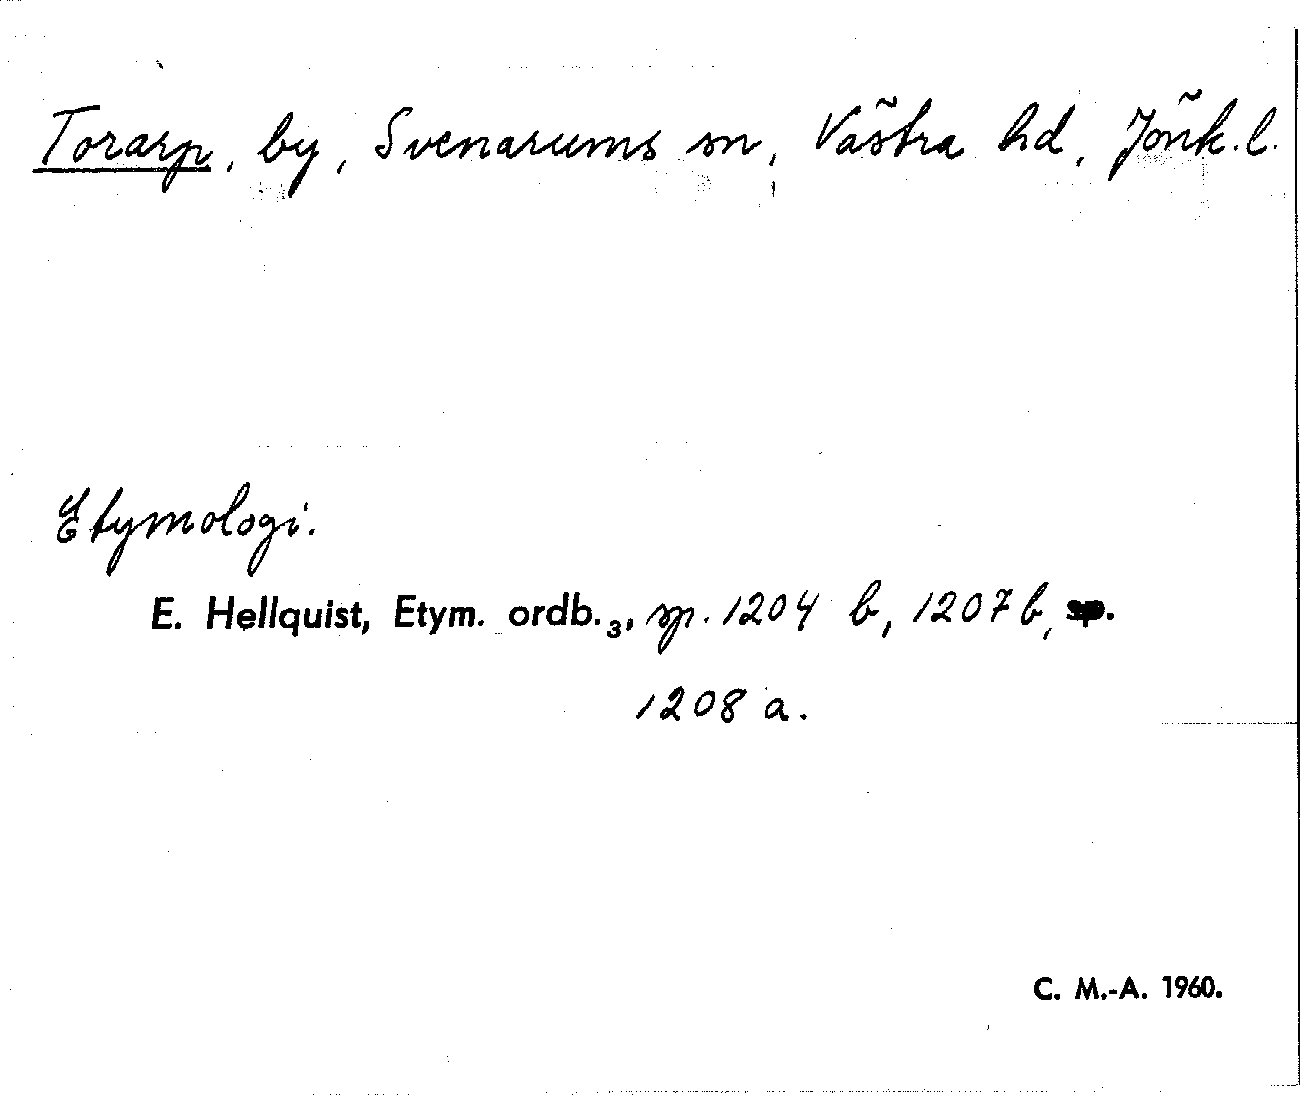 Torarp, by, Svenarums sn, Västra hd, Jönk. l.
Etymologi.
E. Hellquist, Etym. ordb.₃, sp. 1204 b, 1207 b, sp.
1208 a.
C. M.-A. 1960.